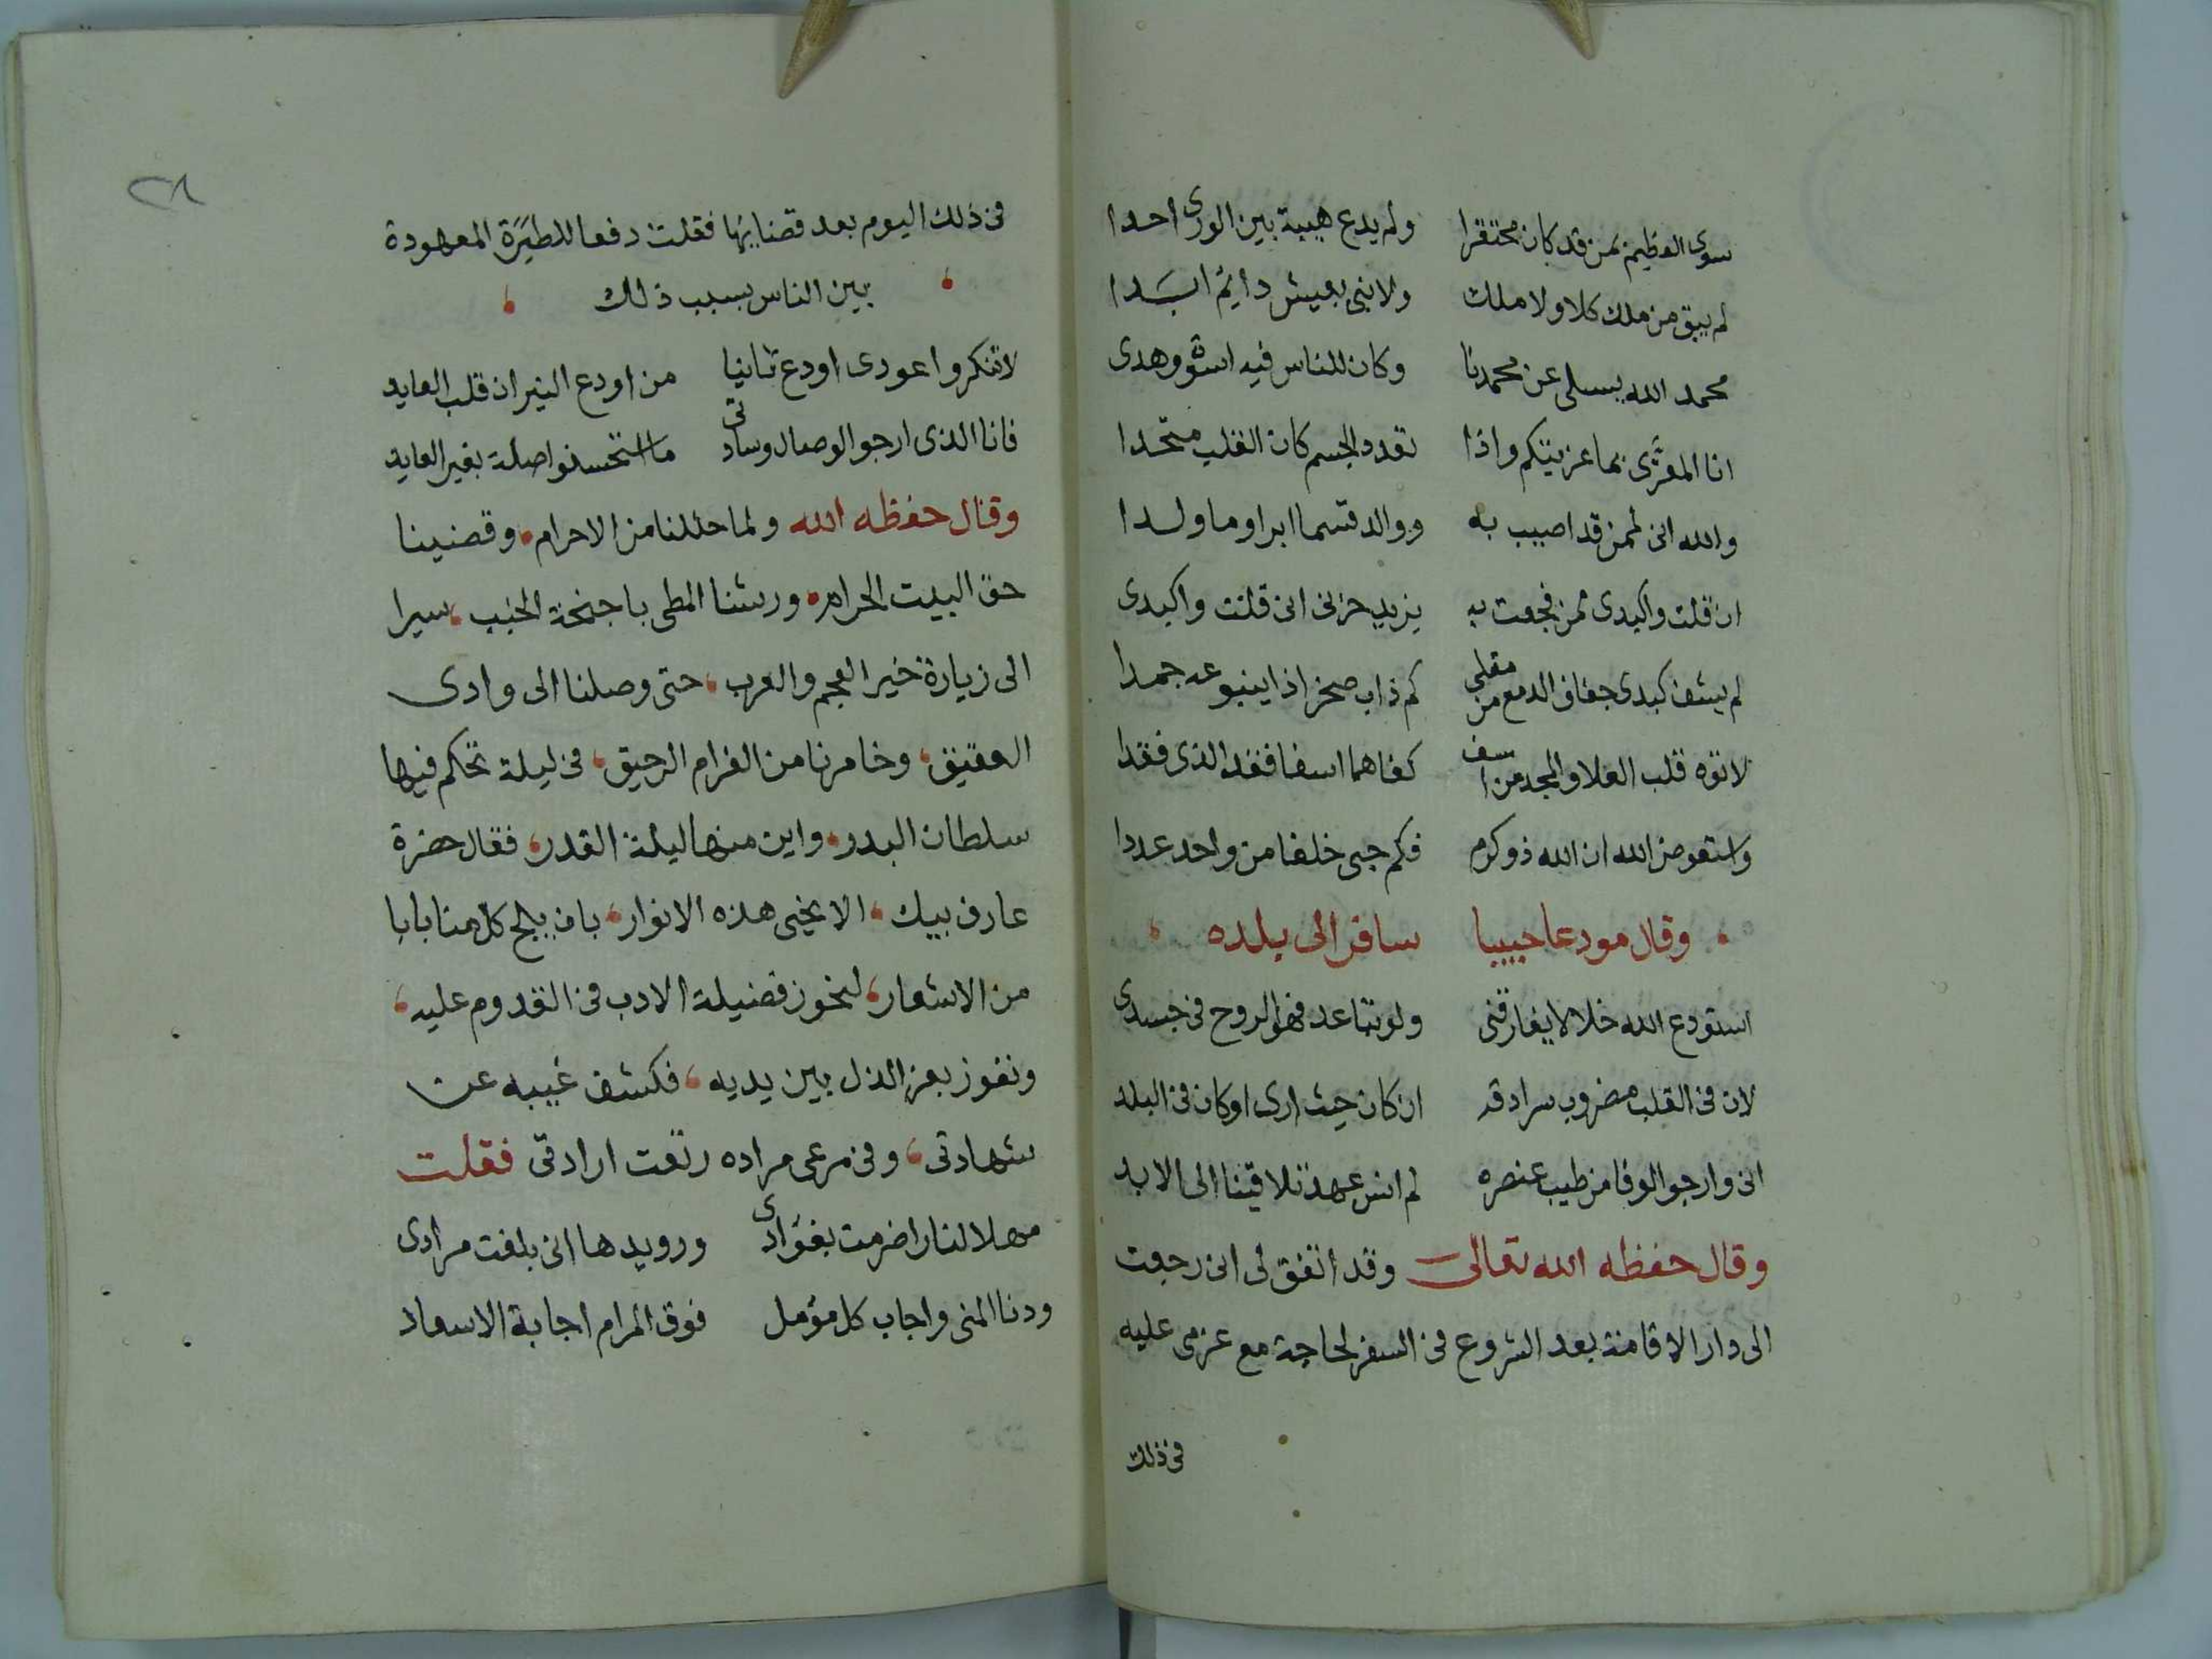 سوى العظيم بمن قد كان محتقرا ولم يدع هيبة بين الورى احدا
لم يبق من ملك كلا ولا ملك ولا نبى بعيش دايم ابدا
محمد الله يسلى عن محمدنا وكان للناس فيه اسوة وهدى
انا المعزى بما عزيتكم واذا تعدد الجسم كان القلب متحدا
والله انى لممن قد اصيب به ووالد قسما ابرا وما ولدا
ان قلت واكبدى ممن فجعت به يزيد حزنى ان قلت واكبدى
لم يشف كبدى جفاف الدمع من مقلى كم ذاب صخر اذا ينبوعه جمدا
لا توه قلب العلا والمجد من اسف كفاهما اسفا فقد الذى فقدا
واستعوض الله ان الله ذو كرم فكم حبى خلفا من واحد عددا
وقال مودعا حبيبا سافر الى بلده
استودع الله خلا لا يفارقنى ولو تباعد فهو الروح فى جسدى
لان فى القلب مضروب سرادقه ان كان حيث ارى او كان فى البلد
انى وارجو الوفا من طيب عنصره لم انس عهد تلاقينا الى الابد
وقال حفظه الله تعالى وقد اتفق لى انى رجعت
الى دار الاقامة بعد الشروع فى السفر لحاجة مع عزمى عليه
فى ذلك
٢٨
فى ذلك اليوم بعد قضايها فقلت دفعا للطيرة المعهودة
بين الناس بسبب ذلك
لا تنكروا عودى اودع ثانيا من اودع النيران قلب العايد
فانا الذى ارجو الوصال وسادتى ما استحسنوا صلة بغير العايد
وقال حفظه الله ولما حللنا من الاحرام، وقضينا
حق البيت الحرام، وريشنا المطى باجنحة الخبب، سيرا
الى زيارة خير العجم والعرب، حتى وصلنا الى وادى
العقيق، وخامرنا من الغرام الرحيق، فى ليلة تحكم فيها
سلطان البدر، واين منها ليلة القدر، فقال حضرة
عارف بيك، الا يحيى هذه الانوار، بان يلج كل منا بابا
من الاشعار، لنحوز فضيلة الادب فى القدوم عليه،
ونفوز بعز الذل بين يديه، فكشف غيبه عن
شهادتى، وفى مرعى مراده رتعت ارادتى فقلت
مهلا لنار اضرمت بفؤادى ورويدها انى بلغت مرادى
ودنا المنى واجاب كل مؤمل فوق المرام اجابة الاسعاد